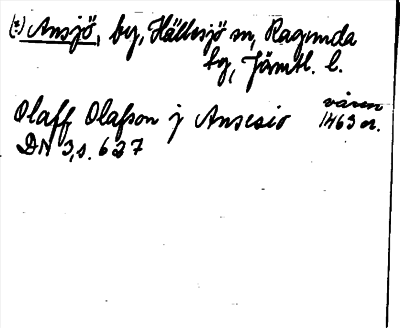 (z) Ansjö, by, Hällesjö sn, Ragunda
tg, Jämtl. l.
våren
Olaff Olafson j Ansesio 1463 or.
DN 3, s. 627